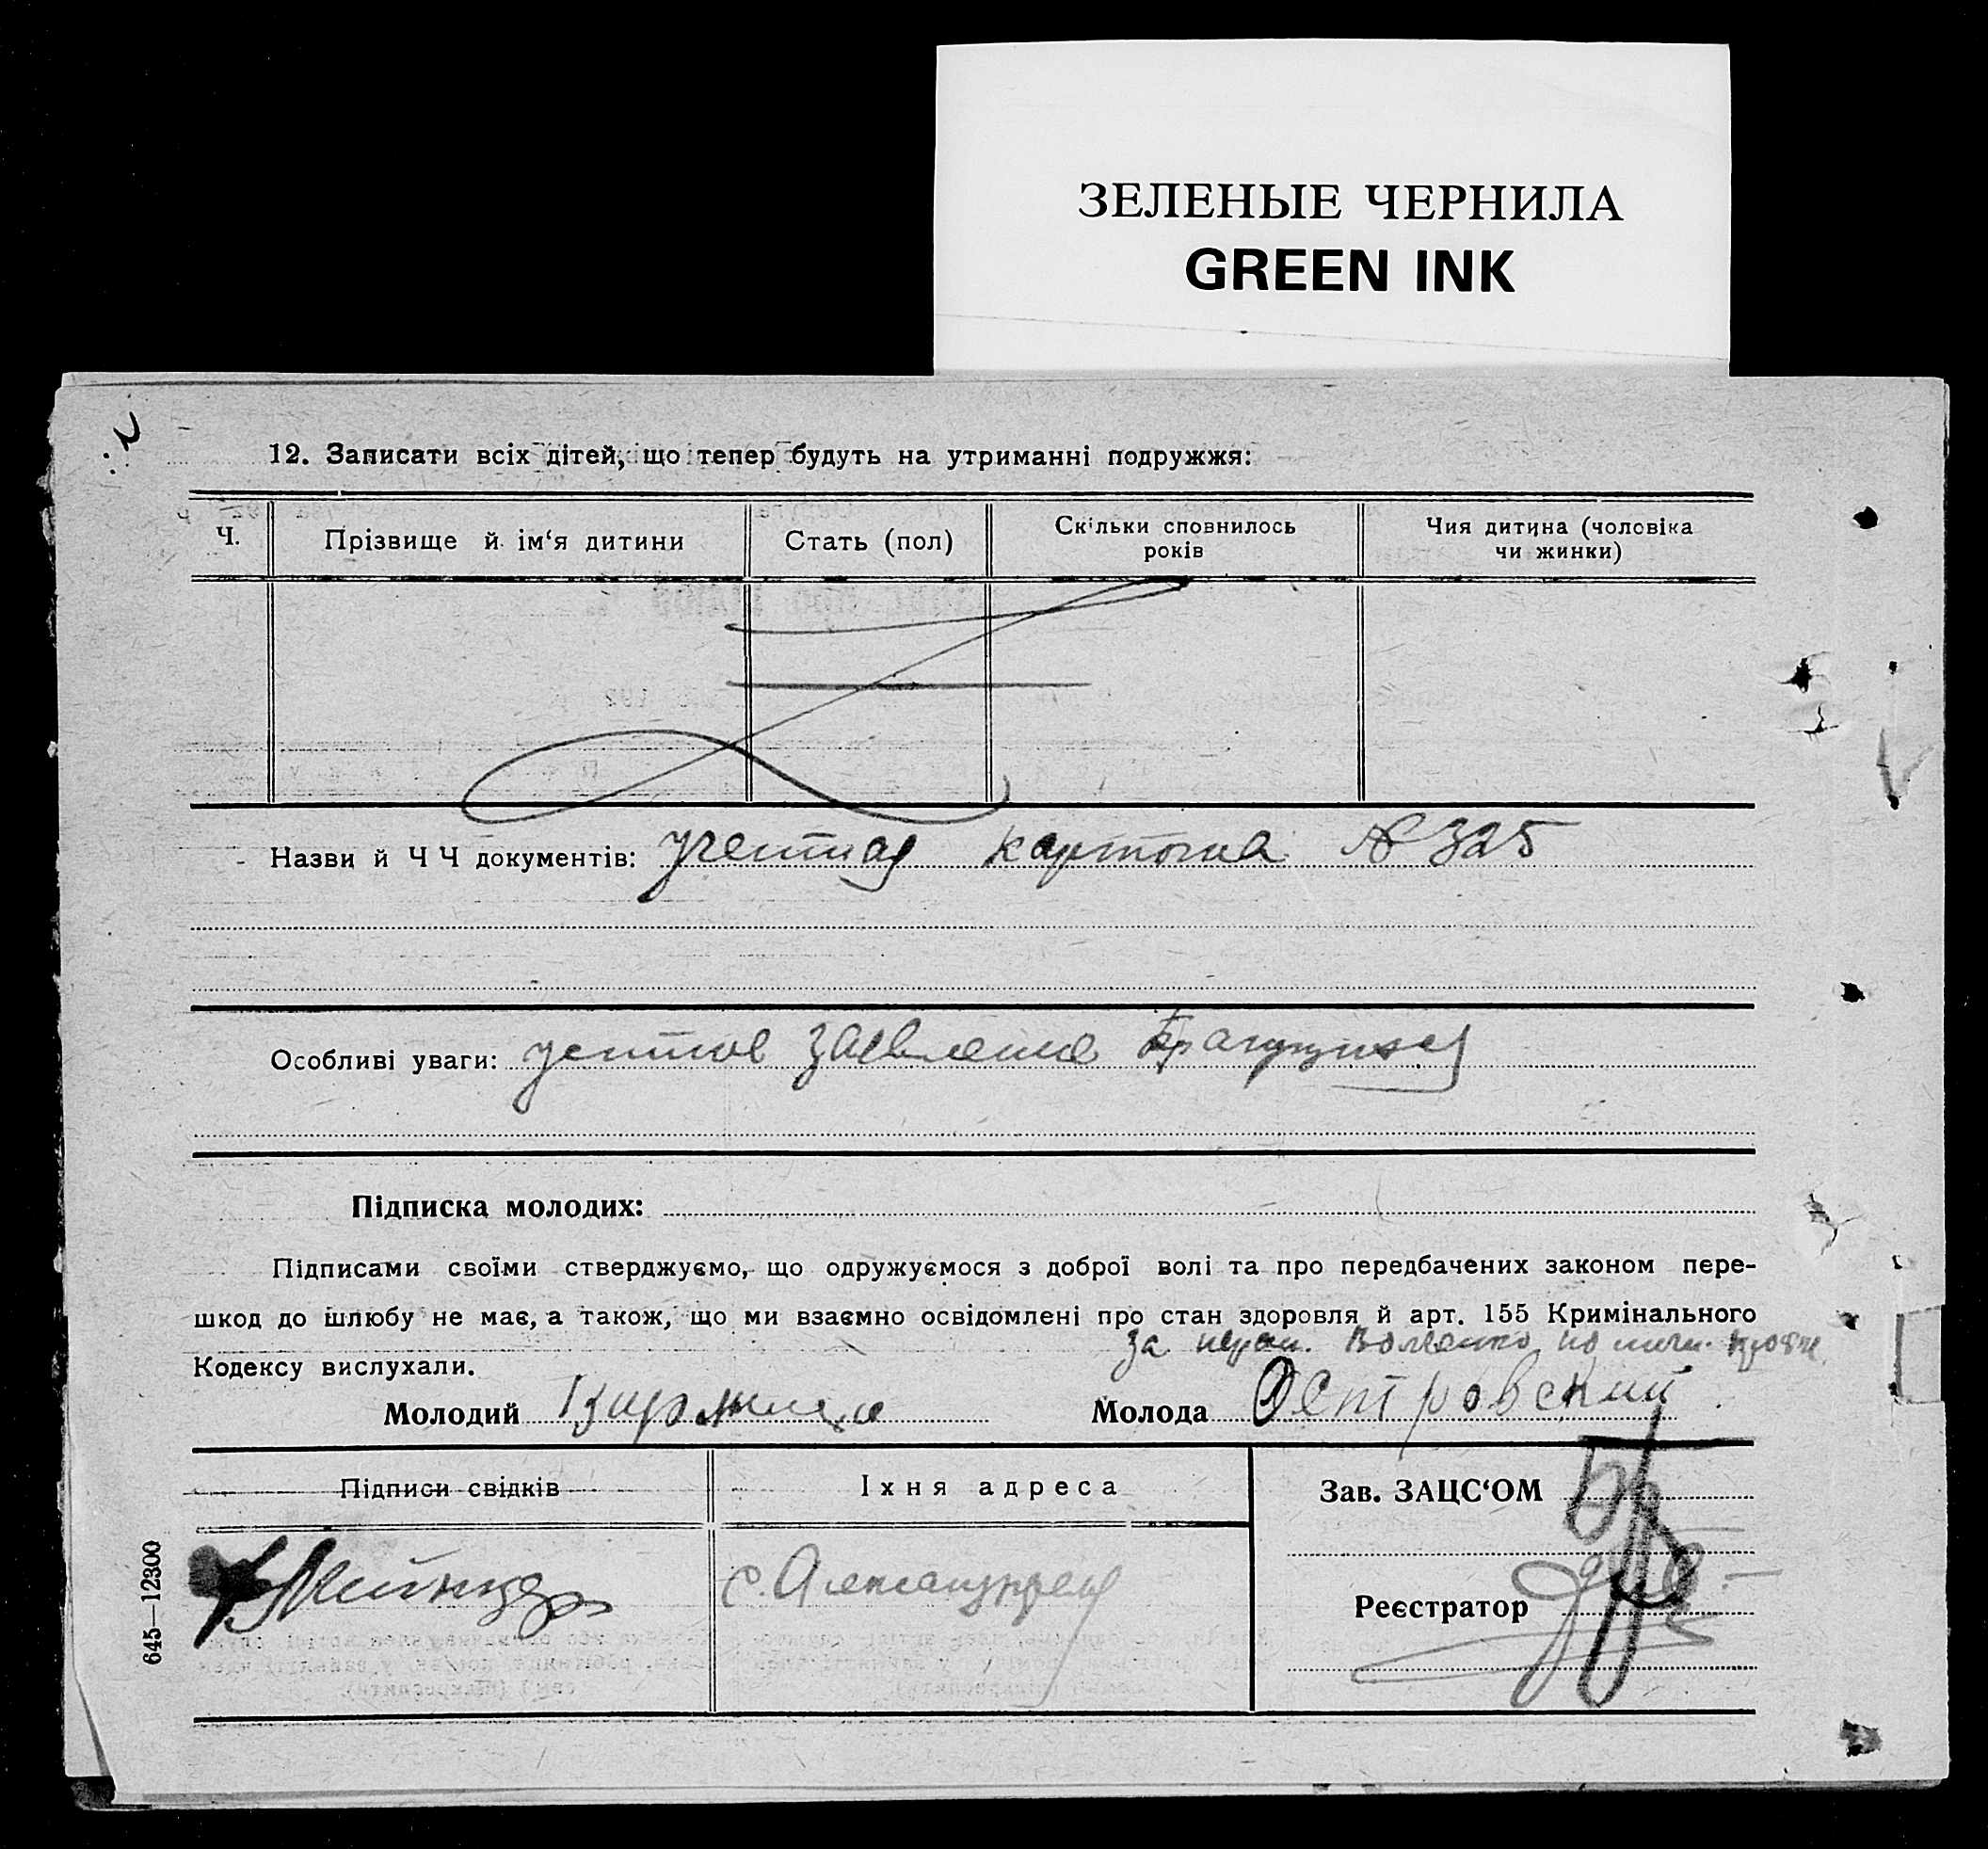 ЗЕЛЕНЫЕ ЧЕРНИЛА
GREEN INK
12. Записати всіх дітей, що тепер будуть на утриманні подружжя:
Ч. Прізвище й ім‘я дитини Стать (пол) Скільки сповнилось років Чия дитина (чоловіка чи жинки)
Назви й Ч Ч документів: учетная карточка № 325
Особливі уваги: устное заявление брачущихся
Підписка молодих:
Підписами своїми стверджуємо, що одружуємося з доброї волі та про передбачених законом пере-
шкод до шлюбу не має, а також, що ми взаємно освідомлені про стан здоровля й арт. 155 Кримінального
за
Кодексу вислухали.
Молодий Молода Островский
Підписи свідків Їхня адреса Зав. ЗАЦС‘ОМ
с.
Реєстратор
645—12300